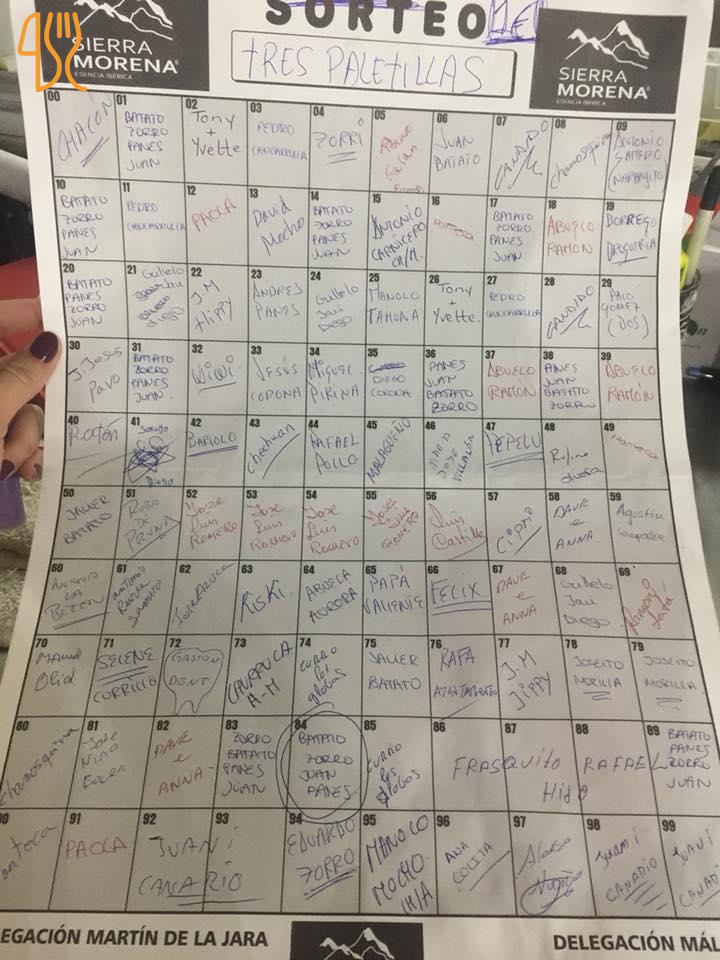 SORTEO
SIERRA
MORENA
ESENCIA IBÉRICA
TRES PALETILLAS
SIERRA
MORENA
ESENCIA IBÉRICA
00
CHACÓN
01
BATATO
ZORRO
PANES
JUAN
02
Tony
+
Yvette
03
PEDRO
CANCARRULLA
04
ZORRI
05
06
JUAN
BATATO
07
CANDIDO
08
Chamosquina
09
ANTONIO
SALCEDO
(NARANJITO)
10
BATATO
ZORRO
PANES
JUAN
11
PEDRO
CANCARRULLA
12
PACCA
13
David
Mocho
14
BATATO
ZORRO
PANES
JUAN
15
ANTONIO
CARNICERO
CH/M.
16
Manteca
17
BATATO
ZORRO
PANES
JUAN
18
ABUELO
RAMON
19
BORREGO
DROGUERIA
20
BATATO
PANES
ZORRO
JUAN
21
Guillelo
Diego
22
J.M
HIPPY
23
ANDRES
PANES
24
Guillelo
Javi
Diego
25
MANOLO
TAHONA
26
Tony
+
Yvette.
27
PEDRO
CANCARRULLA
28
CANDIDO
29
PACO
GOMEZ
(DOS)
30
J. Jesus
Pavo
31
BATATO
ZORRO
PANES
JUAN.
32
WIWI
33
JESÚS
CORONA
34
MIGUEL
PIRINA
35
DIEGO
CORONA
36
PANES
JUAN
BATATO
ZORRO
37
ABUELO
RAMÓN
38
PANES
JUAN
BATATO
ZORRO
39
ABUELO
RAMÓN
40
Ratón
41
Diego
42
BARTOLO
43
chechuan
44
RAFAEL
POLLO
45
MALAGUEÑO
46
MARIA
JOSE
VILLALÓN
47
PEPELU
48
Rufino
49
Manteca
50
JAVIER
BATATO
51
RUBIO
DE
PRUNA
52
JOSE
LUIS
ROMERO
53
JOSE
LUIS
ROMERO
54
JOSE
LUIS
ROMERO
55
JOSE
LUIS
ROMERO
56
Luis
Castillo
57
Cipri
58
DAVE
e
ANNA.
59
Agustin
Compadre
60
ANTONIO
LA
61
antonio
Rueda
62
Jose Aruca
63
RISKI
64
ABUELA
AURORA
65
PAPÁ
VALIENTE
66
FELIX.
67
DAVE
e
ANNA
68
Guillelo
Javi
Diego
69
70
Manuel
Olid
71
SELENE
CURRILLO
72
GASTON
DENT
73
CAURRUCA
A-M
74
CURRO
los
globos
75
JAVIER
BATATO
76
RAFA
AYUNTAMIENTO
77
J.M
JIPPY
78
JOSEITO
MORILLA
79
JOSEITO
MORILLA
80
Chamosquina
81
Jose
Nino
82
DAVE
e
ANNA
83
ZORRO
BATATO
PANES
JUAN
84
BATATO
ZORRO
JUAN
PANES
85
CURRO
los globos
86
87
FRASQUITO
HIJO
88
RAFAEL
89
BATATO
PANES
ZORRO
JUAN
90
Manteca
91
PACCA
92
93
JUANI
CANARIO
94
EDUARDO
ZORRO
95
MANOLO
MOCHO
H/A
96
ANA
COLITA
97
Alonso
98
Juani
CANARIO
99
JUANI
CANARIO
DELEGACIÓN MARTÍN DE LA JARA
DELEGACIÓN MÁL